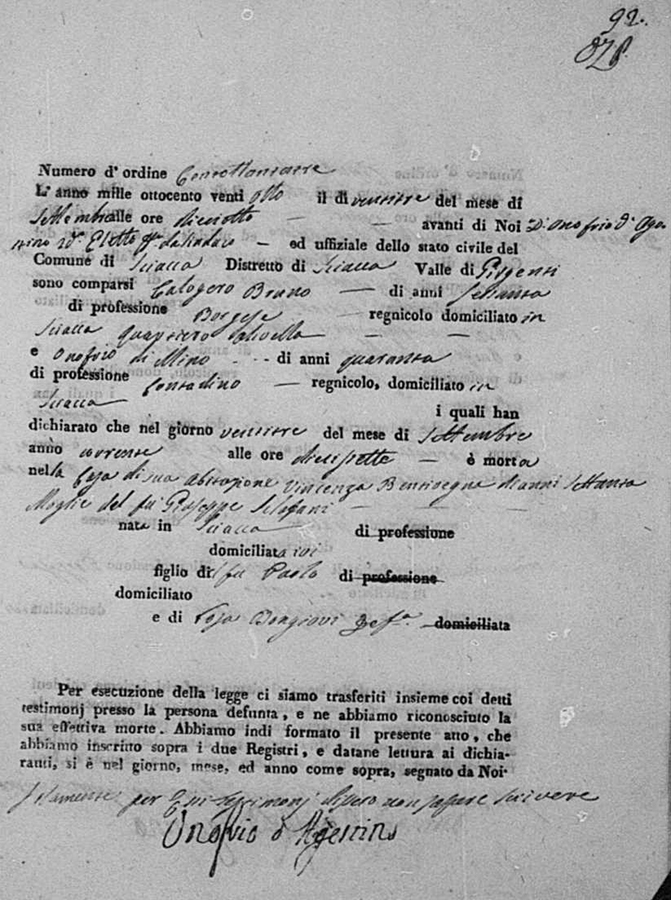 92.
Numero d' ordine Centottantatre
L' anno mille ottocento venti otto il di ventitre del mese di
Settembre alle ore dieciotto avanti di Noi D. Onofrio d' Ago
stino ed uffiziale dello stato civile del
Comune di Sciacca Distretto di Sciacca Valle di Girgenti
sono comparsi Calogero Bruno di anni Settanta
di professione Borgese regnicolo domiciliato in
Sciacca quartiero
e Onofrio di Mino di anni quaranta
di professione Contadino regnicolo, domiciliato in
Sciacca i quali han
dichiarato che nel giorno ventitre del mese di Settembre
anno corrente alle ore diecisette è morta
nella Casa di sua abitazione Vincenza Bentivegna di anni Settanta
Moglie del fu Giuseppe
nata in Sciacca di professione
domiciliata ivi
figlio di fu Paolo di professione
domiciliato
e di Rosa Bongiovi domiciliata
Per esecuzione della legge ci siamo trasferiti insieme coi detti
testimonj presso la persona defunta, e ne abbiamo riconosciuto la
sua effettiva morte. Abbiamo indi formato il presente atto, che
abbiamo inscritto sopra i due Registri, e datane lettura ai dichia-
ranti, si è nel giorno, mese, ed anno come sopra, segnato da Noi
solamente per testimonj dissero non sapere scrivere
Onofrio d' Agostino